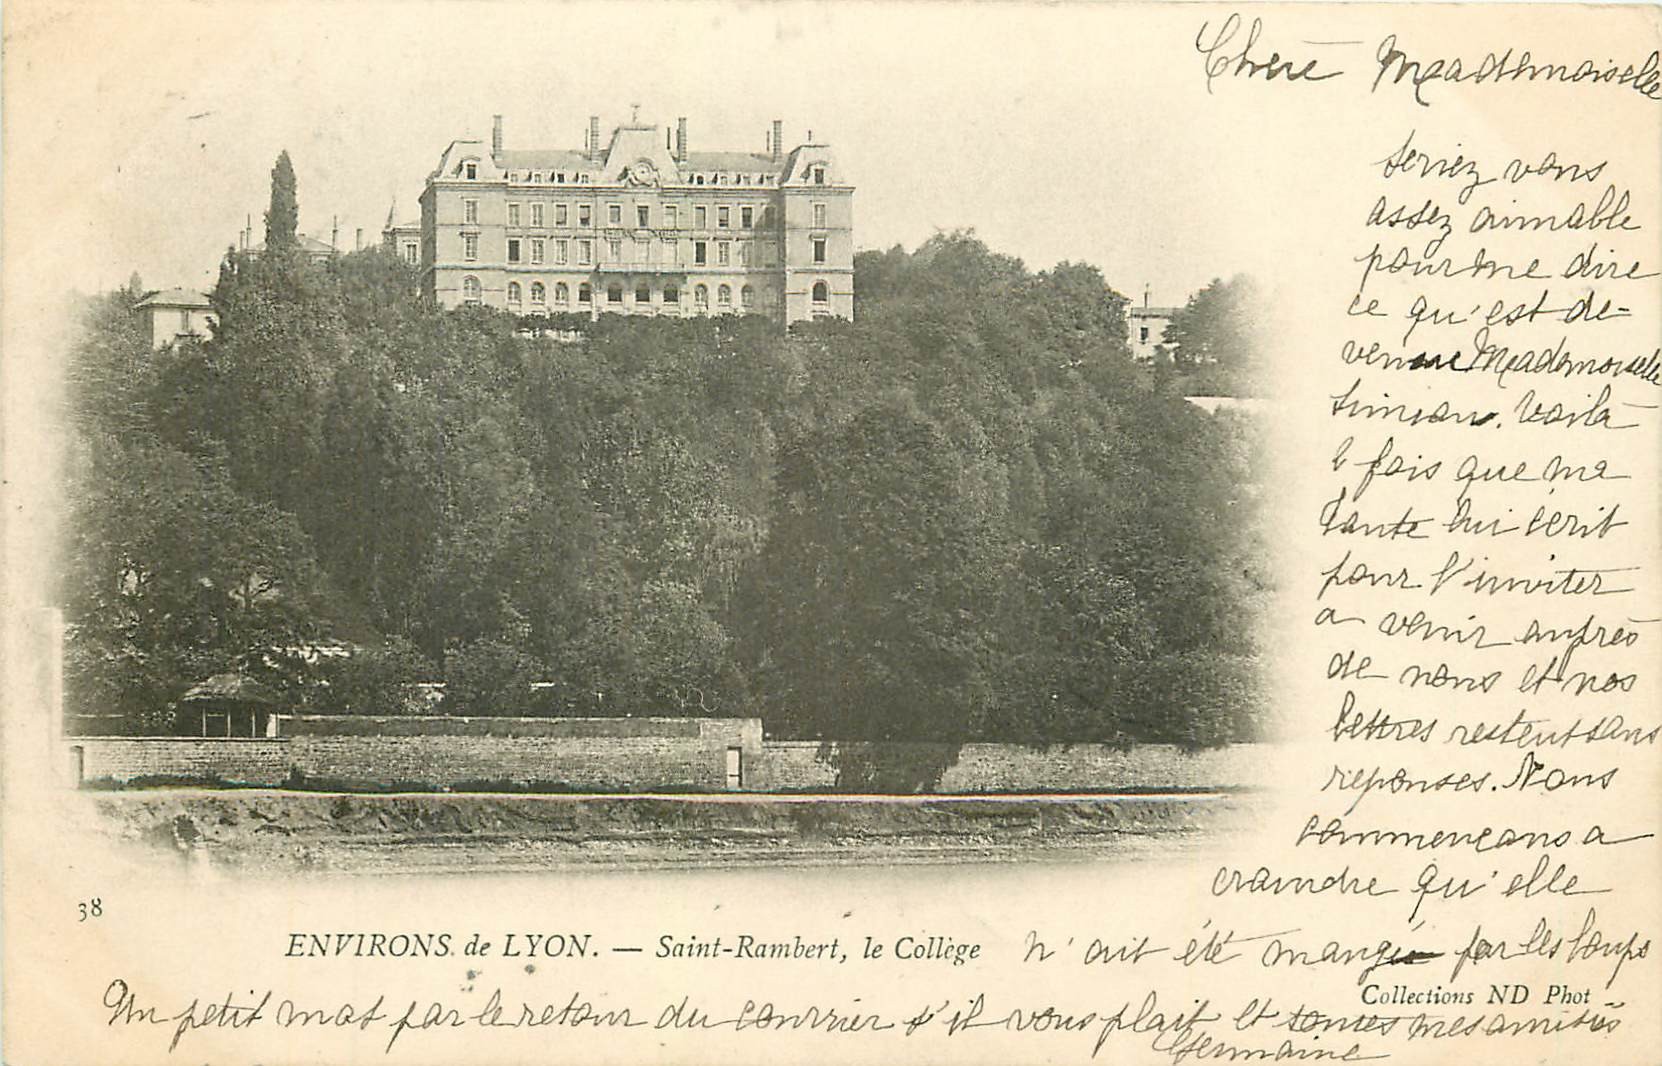 Chère Mademoiselle
seriez vous
assez aimable
pour me dire
ce qu'est de-
venue Mademoiselle
Simian. Voilà
2 fois que ma
tante lui écrit
pour l'inviter
a venir auprès
de nous et nos
lettres restent sans
réponses. Nous
commençons a
craindre qu'elle
n'ait été mangée par les loups
38
ENVIRONS de LYON. — Saint-Rambert, le Collège
Collections ND Phot
Un petit mot par le retour du courrier s'il vous plait et toutes mes amitiés
Germaine